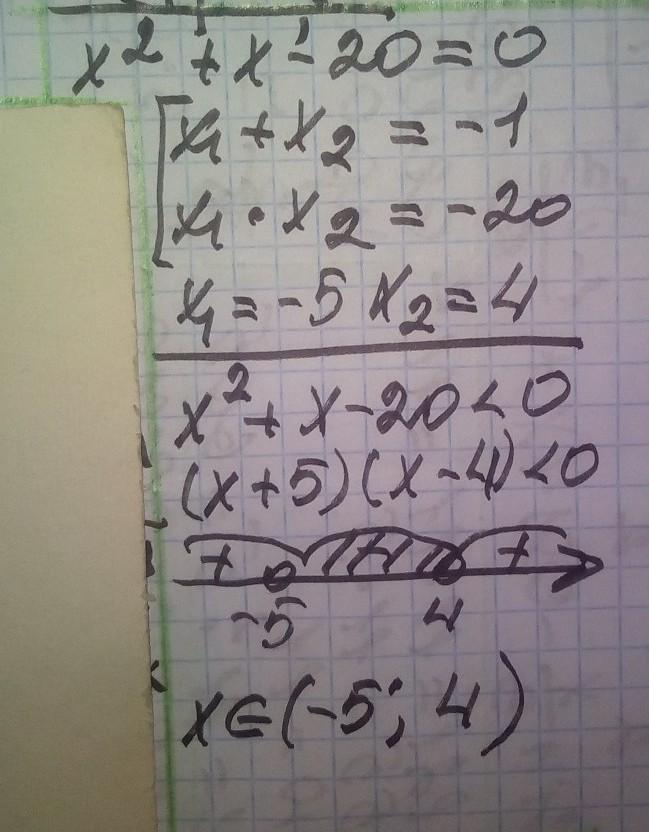 x² + x - 20 = 0
[ x₁ + x₂ = -1
x₁ · x₂ = -20
x₁ = -5 x₂ = 4
x² + x - 20 < 0
(x + 5)(x - 4) < 0
+ - +
-5 4
x ∈ (-5; 4)